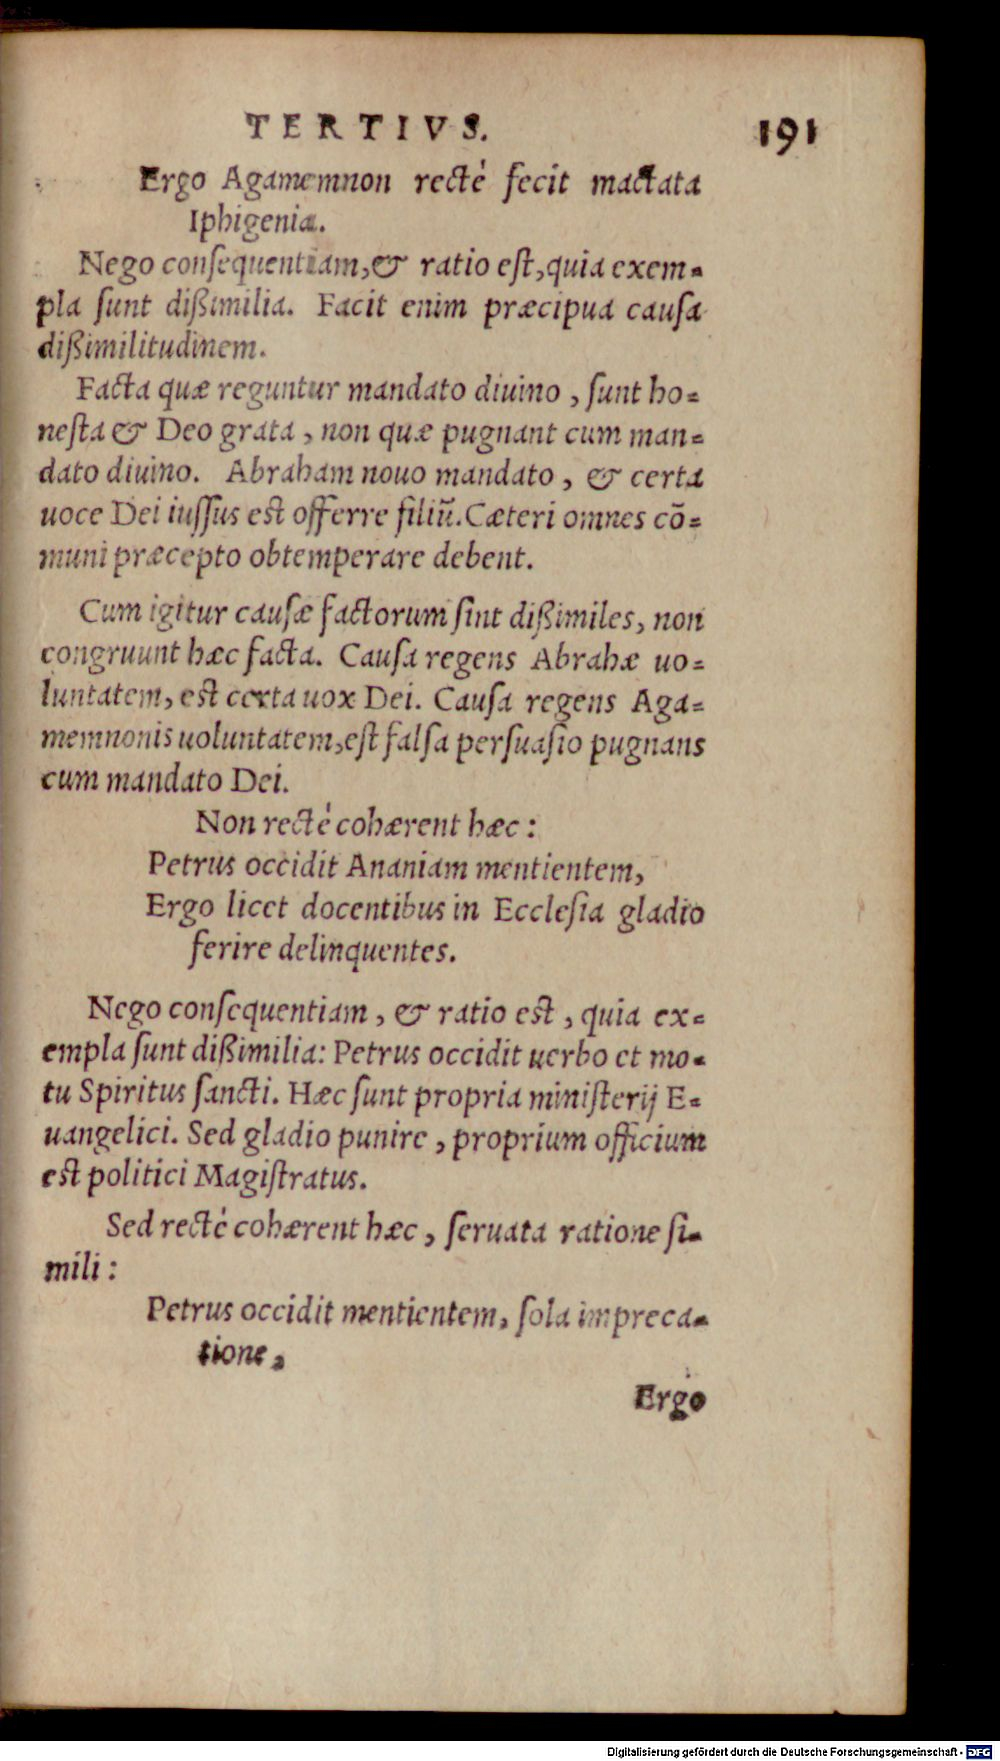 TERTIVS. 191
Ergo Agamemnon recté fecit mactata
Iphigenia.
Nego consequentiam, & ratio est, quia exem-
pla sunt dißimilia. Facit enim præcipua causa
dißimilitudinem.
Facta quæ reguntur mandato diuino, sunt ho-
nesta & Deo grata, non quæ pugnant cum man-
dato diuino. Abraham nouo mandato, & certa
uoce Dei iussus est offerre filiũ. Cæteri omnes cõ-
muni præcepto obtemperare debent.
Cum igitur causæ factorum sint dißimiles, non
congruunt hæc facta. Causa regens Abrahæ uo-
luntatem, est certa uox Dei. Causa regens Aga-
memnonis uoluntatem, est falsa persuasio pugnans
cum mandato Dei.
Non recté cohærent hæc:
Petrus occidit Ananiam mentientem,
Ergo licet docentibus in Ecclesia gladio
ferire delinquentes.
Nego consequentiam, & ratio est, quia ex-
empla sunt dißimilia: Petrus occidit uerbo et mo-
tu Spiritus sancti. Hæc sunt propria ministerij E-
uangelici. Sed gladio punire, proprium officium
est politici Magistratus.
Sed recté cohærent hæc, seruata ratione si-
mili:
Petrus occidit mentientem, sola impreca-
tione,
Ergo
Digitalisierung gefördert durch die Deutsche Forschungsgemeinschaft - DFG